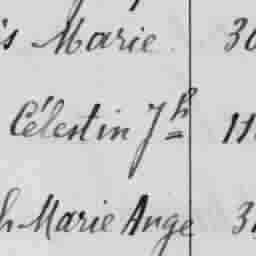 is Marie 30
Célestin Jh 11
h Marie Ange 3